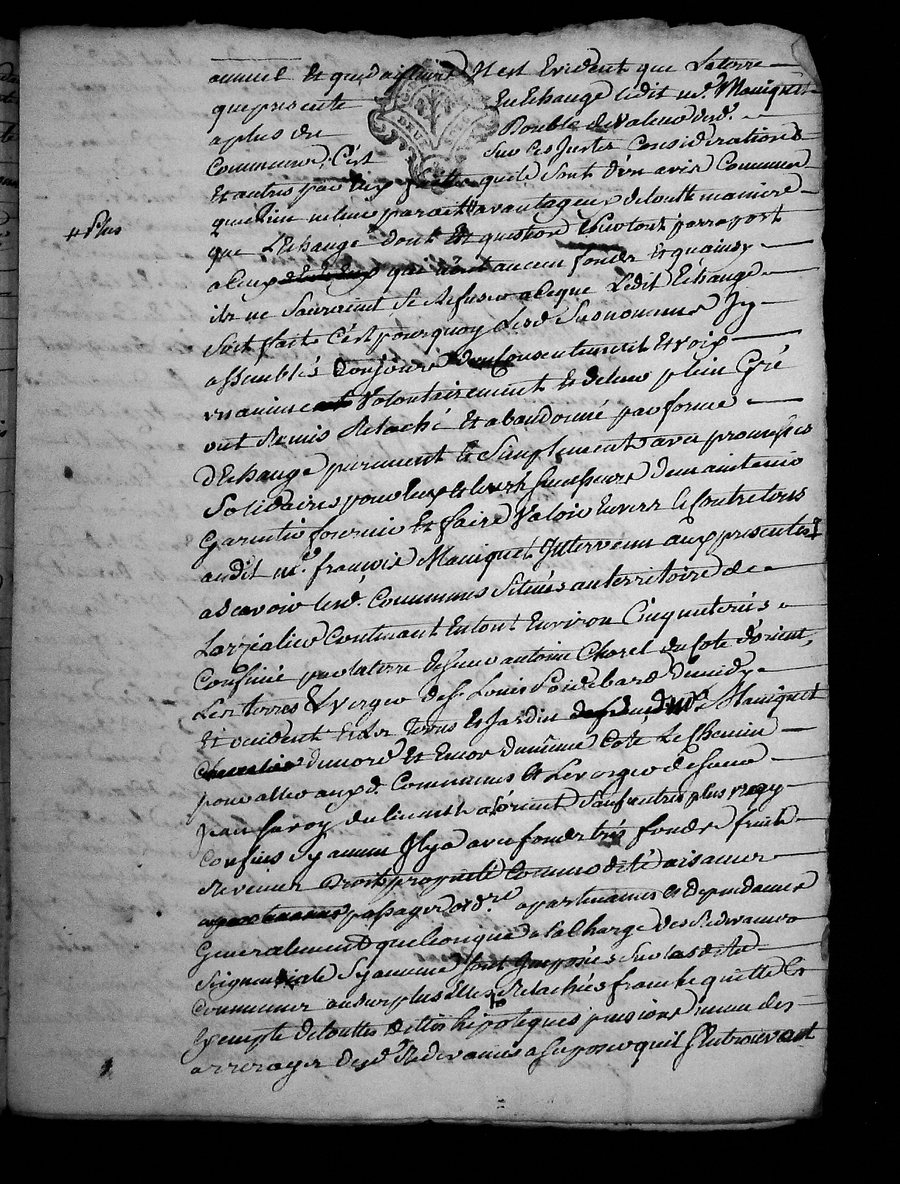 annuel Et que d'ailleurs Il est Evident que Laterre
que presente En Echange ledit me. Maniquet
a plus de Double de valeur desd.
Commune, C'est Sur ces Justes Considerations
Et autres par Eux quils sont d'un avis Commun
que Rien même paroit avantageux de toutte maniere
# Plus
que L'Echange dont Est question Surtout parraport
a Eux qui n'ont aucun fonds Et quainsy
ils ne Sauroient Se Refuser a ce que Ledit Echange
Soit fait C'est pourquoy Lesd. Susnommés Jy
assemblés toujours du Consentement Et voix
unanime Volontairement Et de leur plein Gré
ont Remis Relaché Et abandonné par forme
D'Echange purement Et Simplement avec promesses
Solidaires pour Eux Et leurs Successeurs de maintenir
Garantir fournir Et faire Valoir Envers Et Contre tous
audit me. françois Maniquet Intervenu aux presentes
a Scavoir lesd. Communes Situés au territoire de
Contenant En tout Environ Cinq
Confiné par la terre de Sieur antoine Chorel du Coté d'orient,
Les terres & Verger de Sr. Louis de midy
Et occident Et Les terres Et Jardin Maniquet
du nord Et Encor du même Coté Le Chemin
pour aller aux d. Communes Et Le verger de Sieur
Jean a L'orient Sauf autres plus vray
Confins Sy aucun Il y a avec fonds tres fonds fruits
Revenus Droits proprieté Commodité aisances
passages ordre. apartenances Et dependances
Generalement quelconques a la Charge des Redevances
Seigneuriale Sy aucune Sur lasditte
Commune au surplus Elles Relachés franche quitte Et
Exempte de touttes dettes hipoteques pensions même des
arrerages desd. Redevances a Suposer quil S'En trouvant